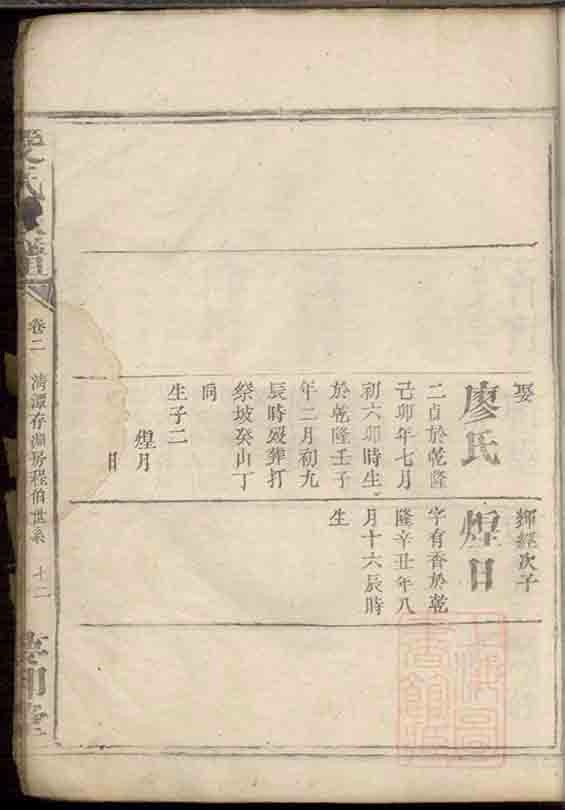 娶
廖氏
二貞於乾隆
己卯年七月
初六卯時生
於乾隆壬子
年二月初九
辰時歿葬打
祭坡癸山丁
向
生子二
煌月
日
輝經次子
煌日
字有香於乾
隆辛丑年八
月十六辰時
生
卷二
清潭存湖房程伯世系
十二